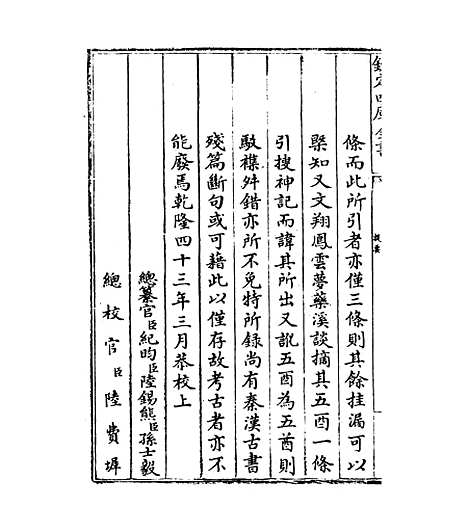 欽定四庫全書
提要
條而此所引者亦僅三條則其餘挂漏可以
槩知又文翔鳳雲夢藥溪談摘其五酉一條
引搜神記而諱其所出又訛五酉為五酋則
駁襍舛錯亦所不免特所録尚有秦漢古書
殘篇斷句或可藉此以僅存故考古者亦不
能廢焉乾隆四十三年三月恭校上
總纂官臣紀昀臣陸錫熊臣孫士毅
總校官臣陸費墀